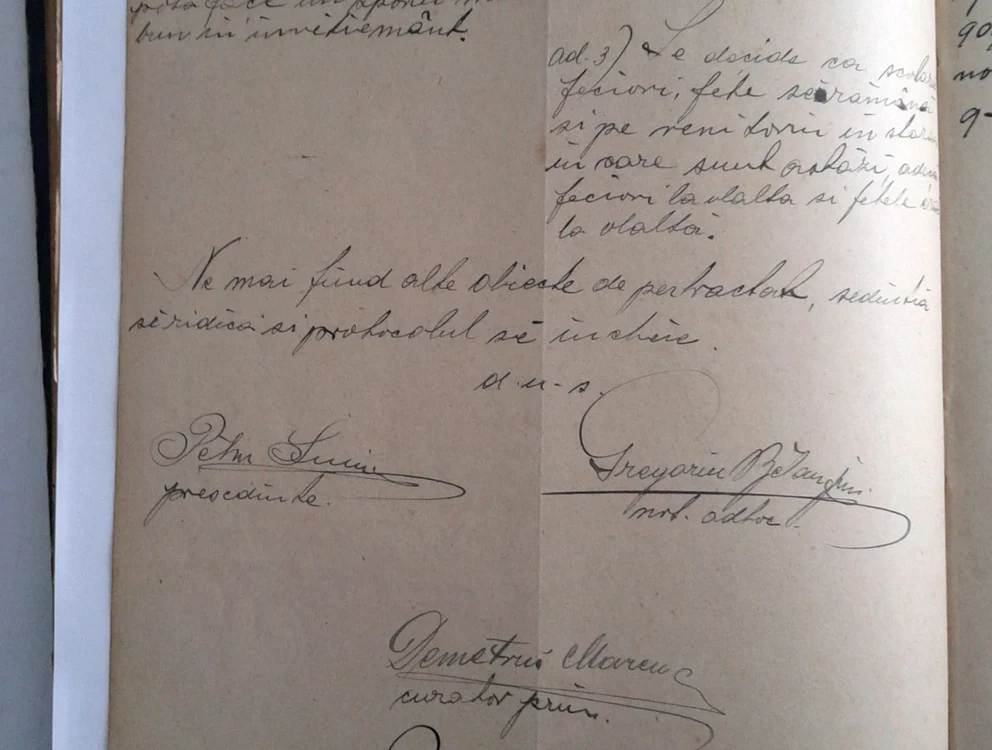 bun in invețiemânt.
ad. 3) Se decide ca scolari
feciori, fete să rămână
si pe venitoriu in starea
in care sunt astăzi, adecă
feciori la olalta si fetele
la olaltă.
Ne mai fiind alte obiecte de pertractat, sedintia
se ridică si protocolul se incheie.
d. u. s.
Petru
presedinte.
Gregoriu
not. adhoc.
Demetriu Marcu
curator prim.
90
no
9-